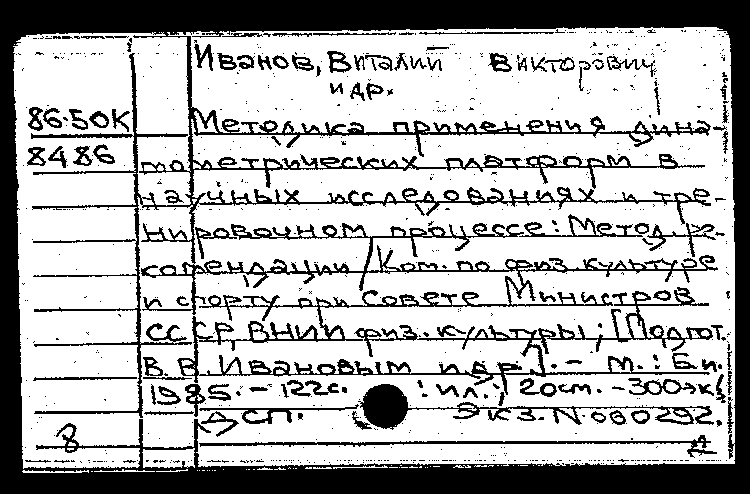 Иванов, Виталий Викторович
и др.
86.50К Методика применения дина-
8486 мометрических платформ в
научных исследованиях и тре-
нировочном процессе: Метод. ре-
комендации / Ком. по физ. культуре
и спорту при Совете Министров
СССР, ВНИИ физ. культуры; [Подгот.
В. В. Ивановым и др.]. - М.: Б.и.
1985. - 122с. : ил.; 20см. - 300экз.
ДСП. Экз. N 000292.
8